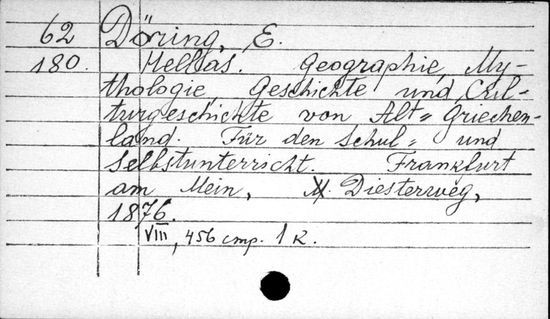 62 Döring, E.
180. Hellas. Geographie, My-
thologie, Geschichte und Cul-
turgeschichte von Alt-Griechen-
land. Für den Schul- und
Selbstunterricht. Frankfurt
am Mein, M. Diesterweg,
1876.
VIII, 456 стр. 1 к.